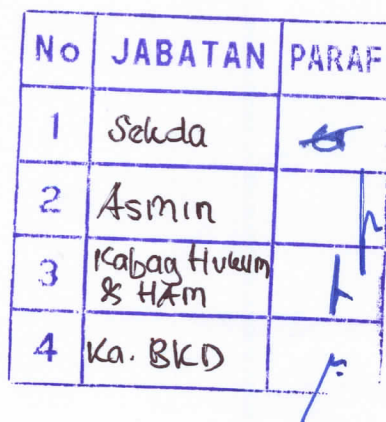 No JABATAN PARAF
1 Sekda
2 Asmin
3 Kabag Hukum
& HAM
4 Ka. BKD